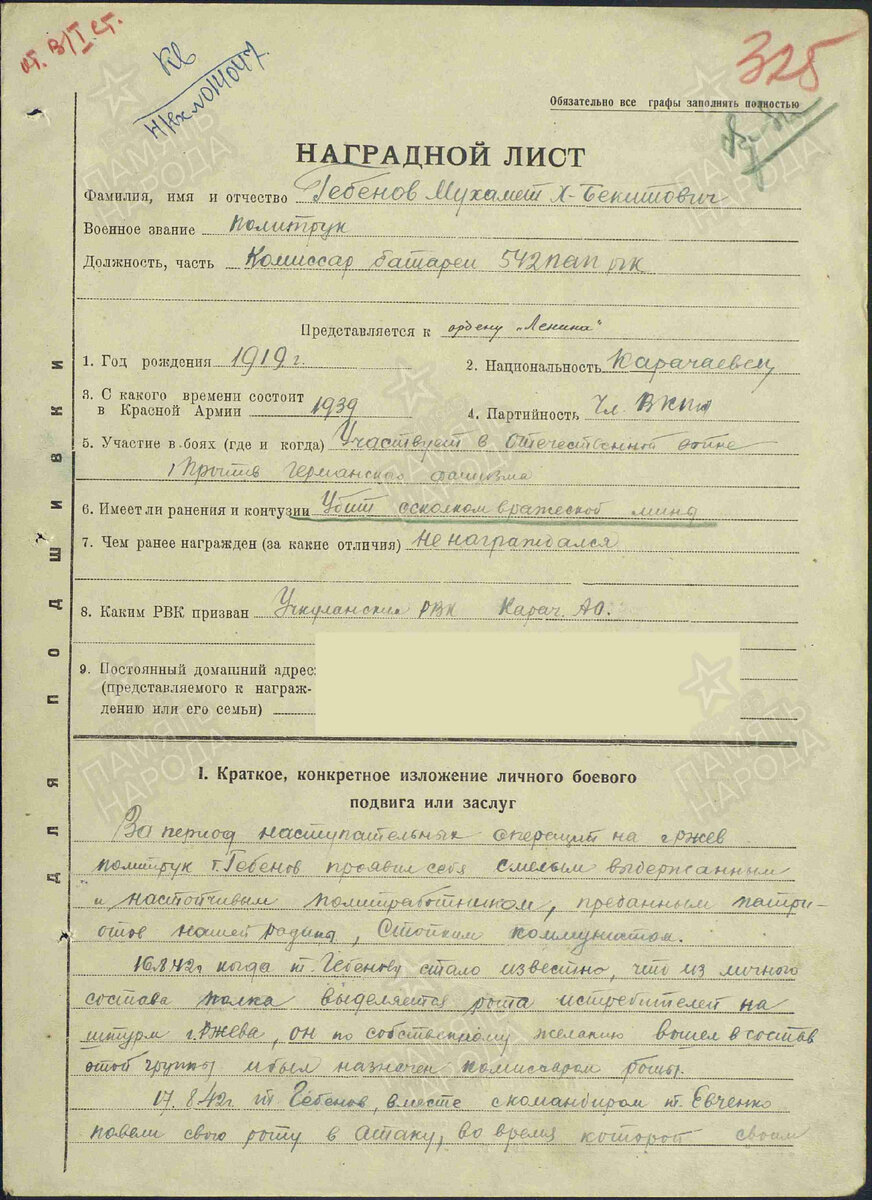 от. В/I ст.
325
Кв
Н/вх №011047
Обязательно все графы заполнять полностью
НАГРАДНОЙ ЛИСТ
Фамилия, имя и отчество Гебенов Мухамет Х-Бекитович
Военное звание политрук
Должность, часть Комиссар батареи 542 пап ргк
Представляется к ордену „Ленина"
1. Год рождения 1919 г.
2. Национальность Карачаевец
3. С какого времени состоит
в Красной Армии 1939
4. Партийность Чл. ВКПб
5. Участие в боях (где и когда) Участвует в отечественной войне
против германского фашизма
6. Имеет ли ранения и контузии Убит осколком вражеской мины
7. Чем ранее награжден (за какие отличия) Не награждался
8. Каким РВК призван Учкуланским РВК Карач. АО.
9. Постоянный домашний адрес:
(представляемого к награж-
дению или его семьи)
ДЛЯ ПОДШИВКИ
I. Краткое, конкретное изложение личного боевого
подвига или заслуг
За период наступательных операций на г Ржев
политрук т. Гебенов проявил себя смелым выдержанным
и настойчивым политработником, преданным патри-
отов нашей родины, Стойким коммунистом.
16.8.42г когда т. Гебенову стало известно, что из личного
состава полка выделяется рота истребителей на
штурм г. Ржева, он по собственному желанию вошел в состав
этой группы и был назначен комиссаром роты.
17.8.42г. т Гебенов, вместе с командиром т. Евченко
повели свою роту в атаку, во время которой своим
ПАМЯТЬ НАРОДА